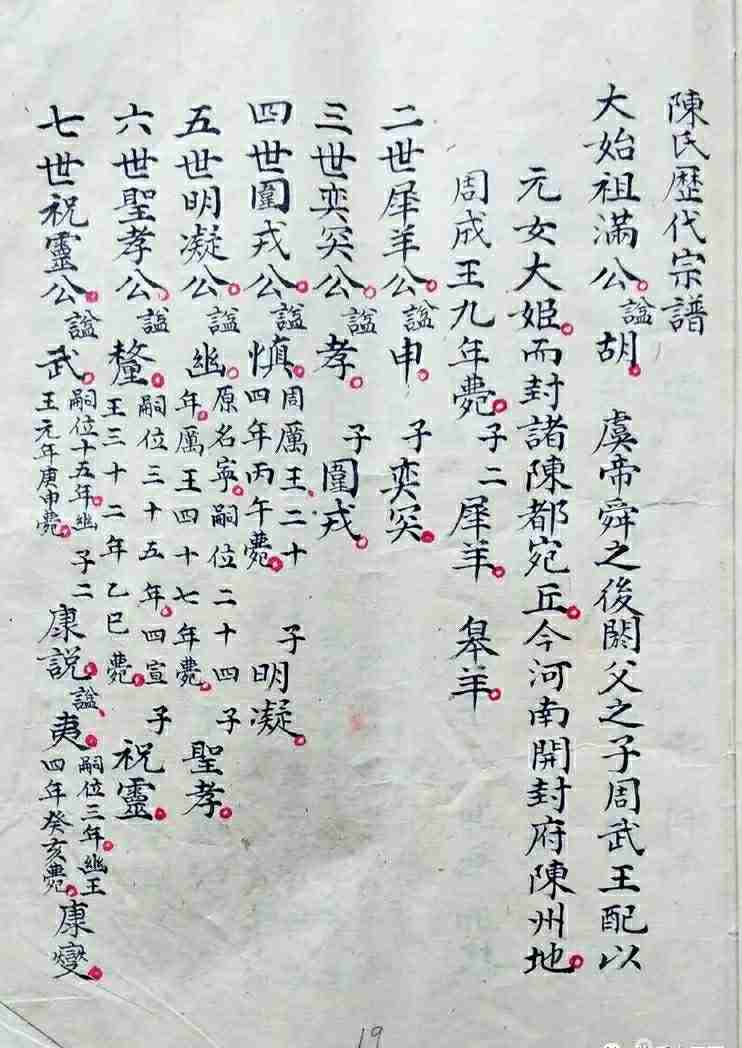 陳氏歷代宗譜
大始祖滿公。諡胡。虞帝舜之後閼父之子周武王配以
元女大姬。而封諸陳都宛丘。今河南開封府陳州地。
周成王九年薨。子二犀羊。皋羊。
二世犀羊公。諡申。子奕哭。
三世奕哭公。諡孝。子圍戎。
四世圍戎公。諡慎。周厲王、二十四年丙午薨。子明凝。
五世明凝公。諡幽。原名寧。嗣位二十四年。厲王四十七年薨。子聖孝。
六世聖孝公。諡釐。嗣位三十五年。四宣王三十二年乙巳薨。子祝靈。
七世祝靈公。諡武。嗣位十五年。幽王元年庚申薨。子二康説。諡、夷。嗣位三年。幽王四年癸亥薨。康燮。
19